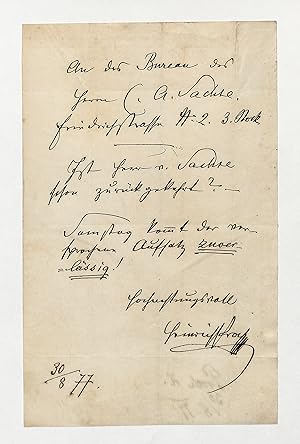 An das Bureau des
Herrn C. A. Sachse.
Friedrichstrasse Nr. 2. 3. Stock
Ist Herr v. Sachse
schon zurückgekehrt? —
Samstag kommt der ver-
sprochene Aufsatz zuver-
lässig!
Hochachtungsvoll
Heinrich
30/8 77.